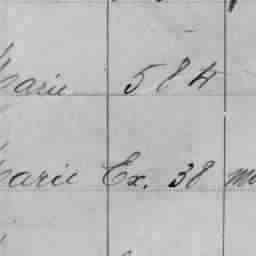 Marie 584
Marie Ex. 38